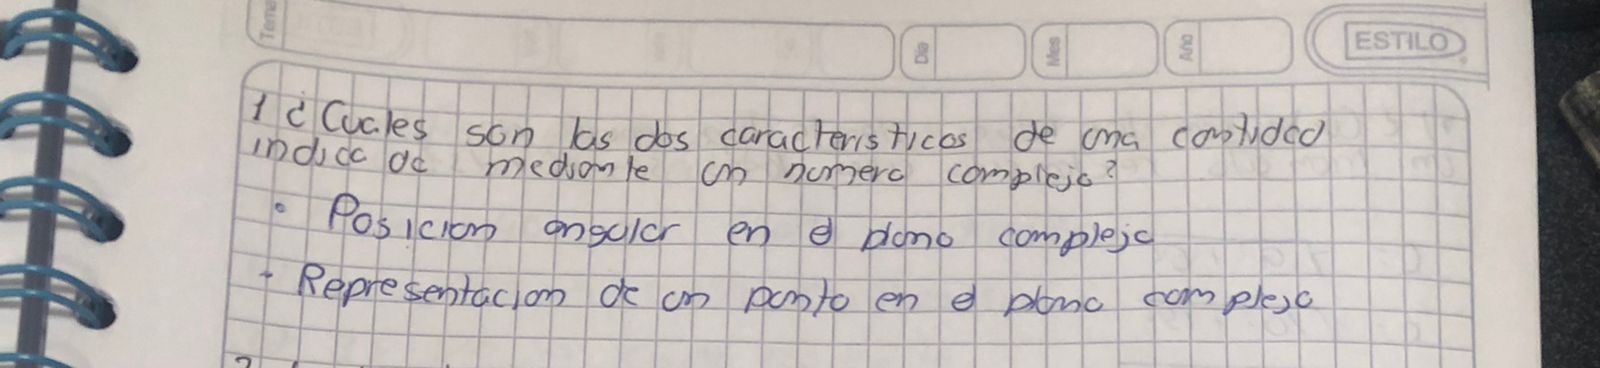 Tema
Dia
Mes
Año
ESTILO
1 ¿Cuales son las dos caracteristicas de una cantidad
indica de mediante un numero complejo?
• Posicion angular en el plano complejo
- Representacion de un punto en el plano complejo
2